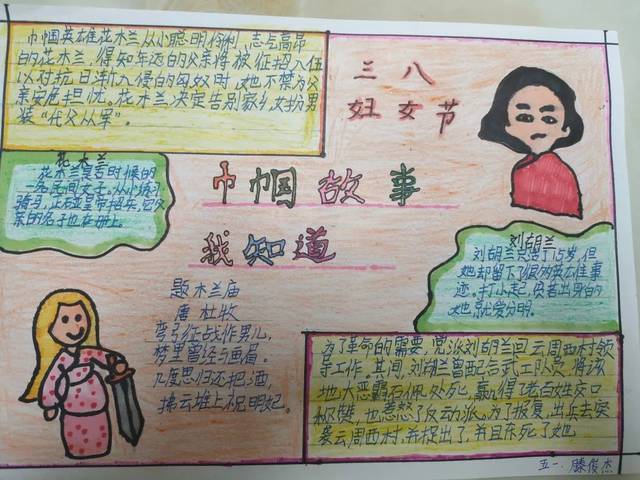 巾帼英雄花木兰从小聪明伶俐,志气高昂
的花木兰,得知年迈的父亲将被征招入伍
以对抗日渐入侵的匈奴时,她不禁为父
亲安危担忧。花木兰决定告别家乡,女扮男
装“代父从军”。
三八
妇女节
花木兰
花木兰是古时候的
一名民间女子。从小练习
骑马,正碰皇帝招兵,它父
亲的名子也在册上。
巾帼故事
我知道
刘胡兰
刘胡兰只活了15岁,但
她却留下了很多英雄事
迹。打小起,贫苦出身的
她,就爱憎分明。
题木兰庙
唐 杜牧
弯弓征战作男儿,
梦里曾经与画眉。
几度思归还把酒,
拂云堆上祝明妃。
为了革命的需要,党派刘胡兰回云周西村领
导工作。其间,刘胡兰曾配合武工队员,将该
地大恶霸石佩处死,赢得了老百姓交口
称赞,也惹怒了反动派。为了报复,出兵去突
袭云周西村,并捉出了,并且杀死了她
五一.滕俊杰